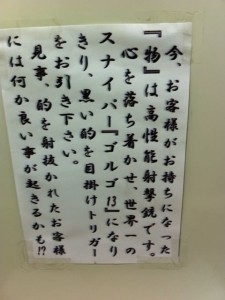 今、お客様がお持ちになった
『物』は高性能射撃銃です。
心を落ち着かせ、世界一の
スナイパー『ゴルゴ13』になり
きり、黒い的を目掛けトリガー
をお引き下さい。
見事、的を射抜かれたお客様
には何か良い事が起きるかも!?